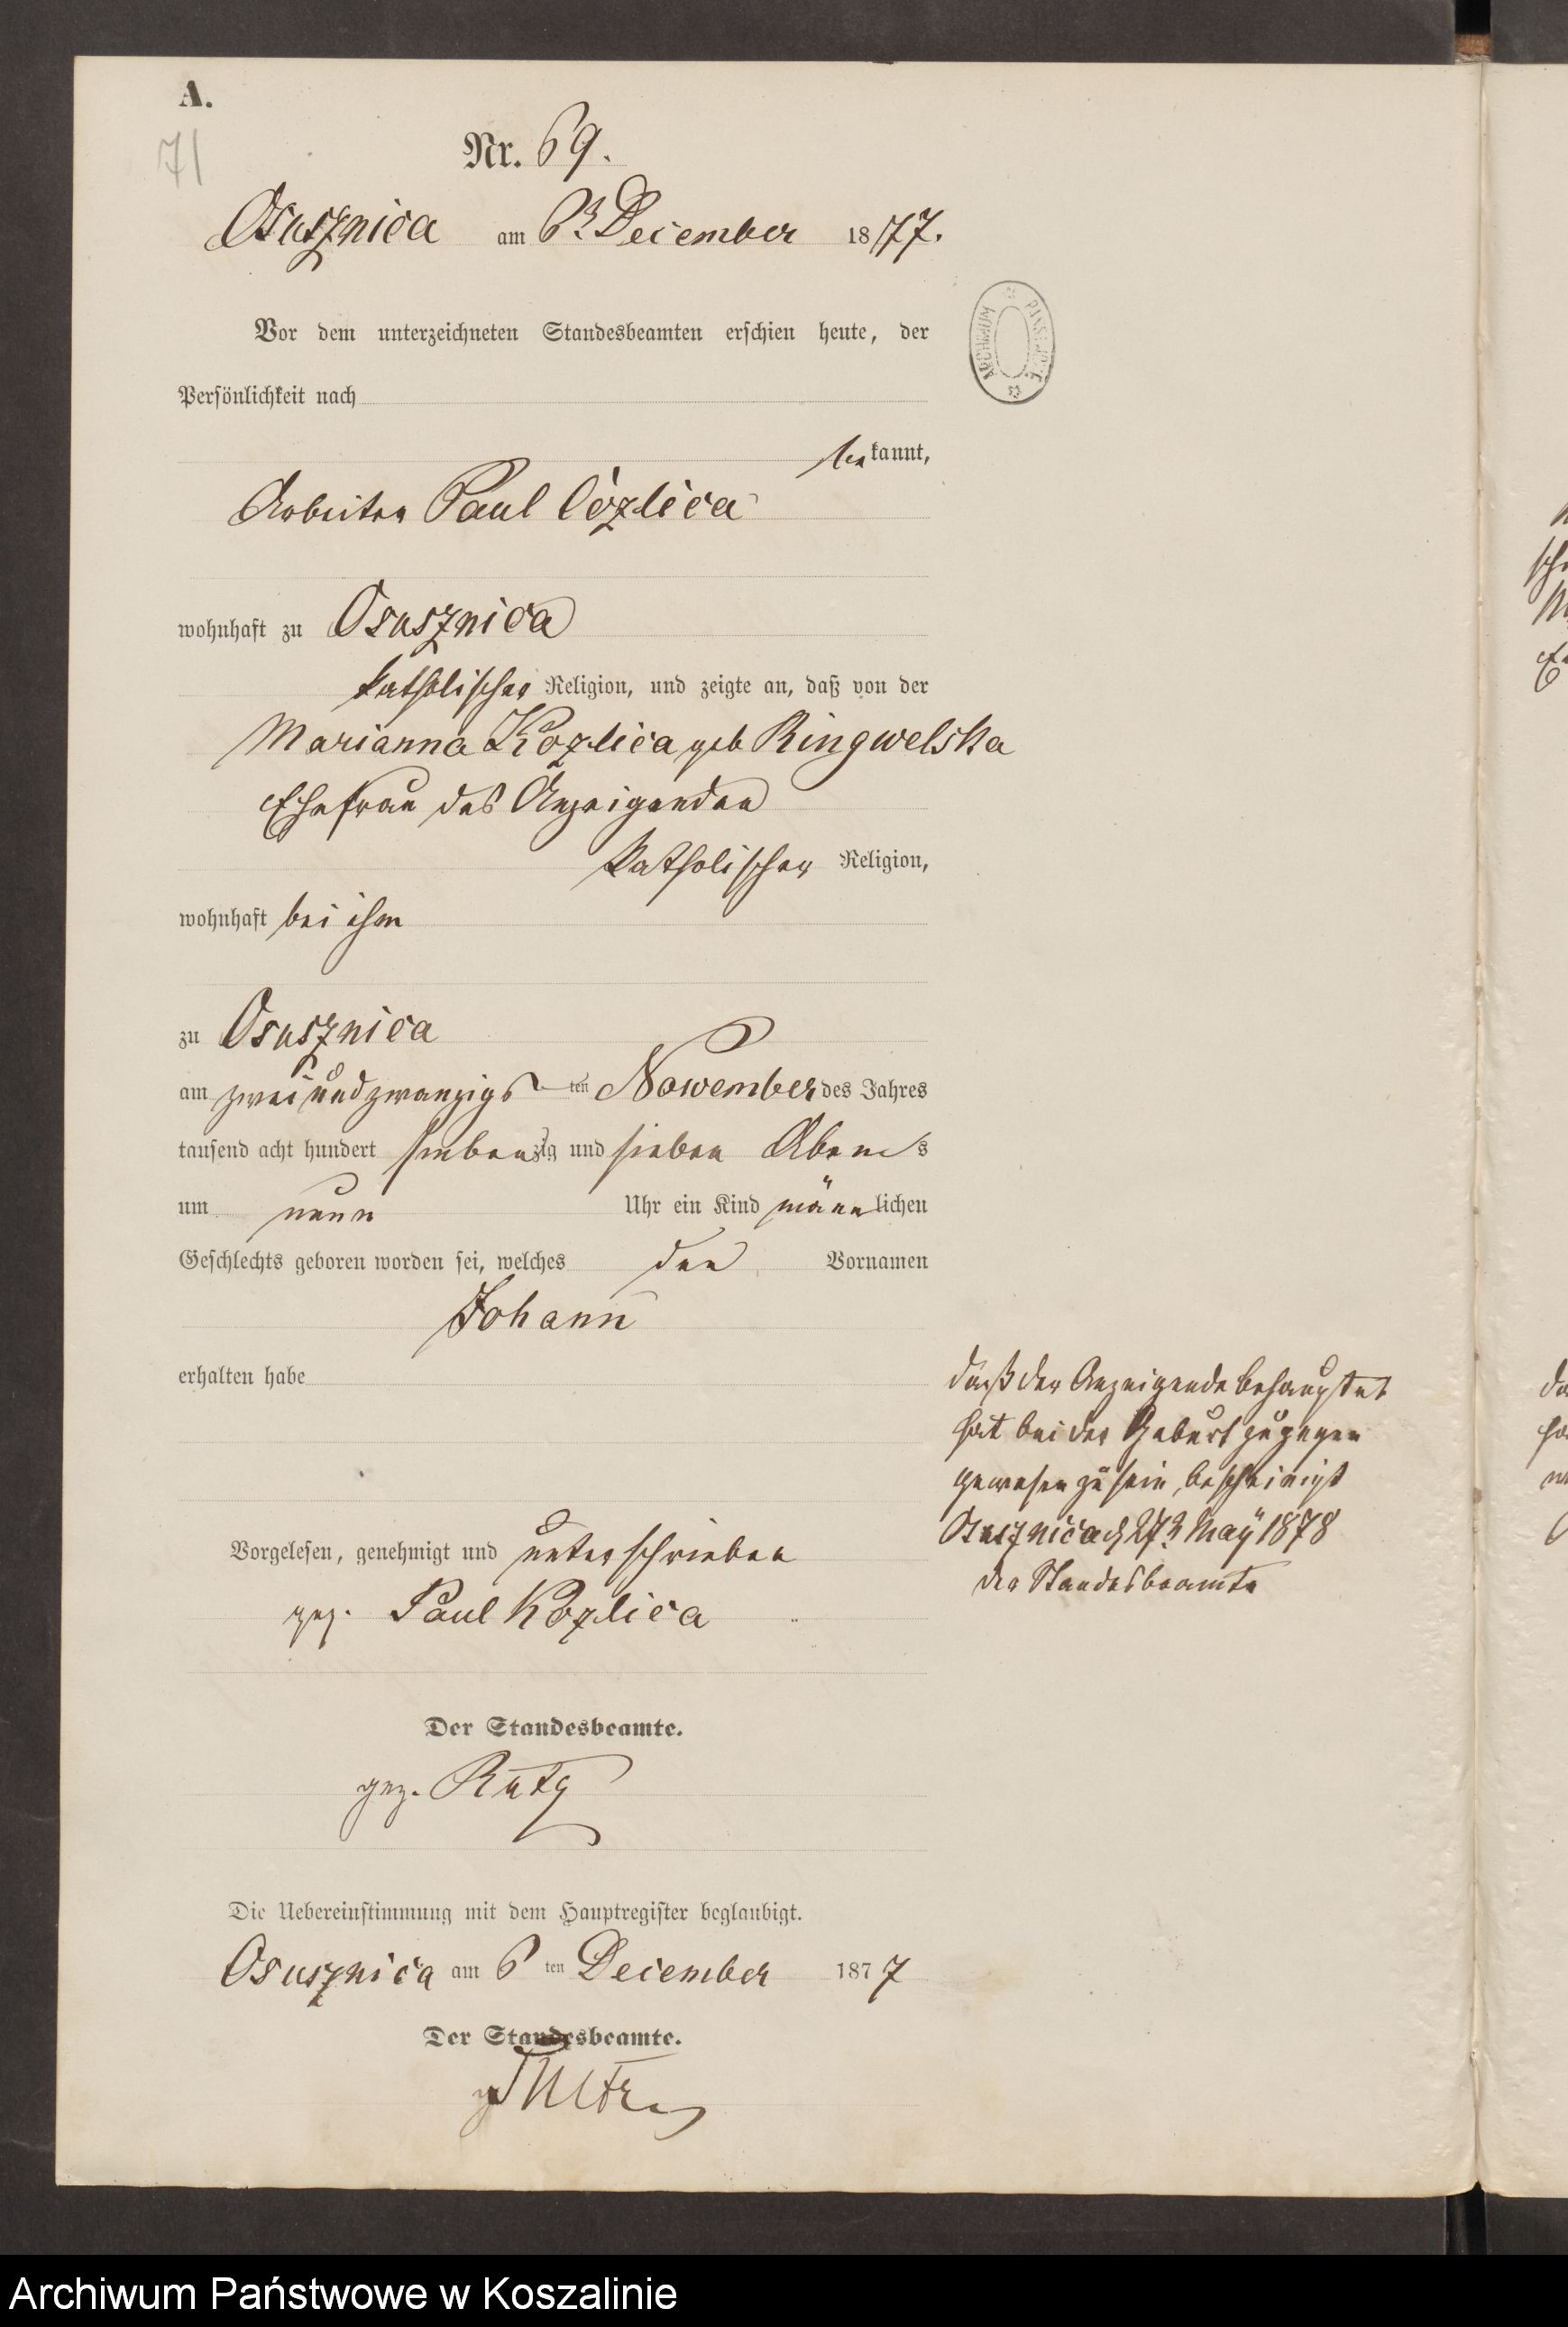 A.
71
Nr. 69.
Osusznica am 6. December 1877.
Vor dem unterzeichneten Standesbeamten erschien heute, der
Persönlichkeit nach
bekannt,
Arbeiter Paul Cózlica
wohnhaft zu Osusznica
katholischer Religion, und zeigte an, daß von der
Marianna Kozlica geb Ringwelska
Ehefrau des Anzeigenden
katholischer Religion,
wohnhaft bei ihm
zu Osusznica
am zwei und zwanzigsten November des Jahres
tausend acht hundert siebenzig und sieben Abends
um neun Uhr ein Kind männlichen
Geschlechts geboren worden sei, welches den Vornamen
Johann
erhalten habe
daß der Anzeigende behauptet
hat bei der Geburt zugegen
gewesen zu sein, bescheinigt
Osusznica d 27. May 1878
der Standesbeamte
Vorgelesen, genehmigt und unterschrieben
gez. Paul Kozlica
Der Standesbeamte.
gez.
Die Uebereinstimmung mit dem Hauptregister beglaubigt.
Osusznica am 6 ten December 1877
Der Standesbeamte.
Archiwum Państwowe w Koszalinie